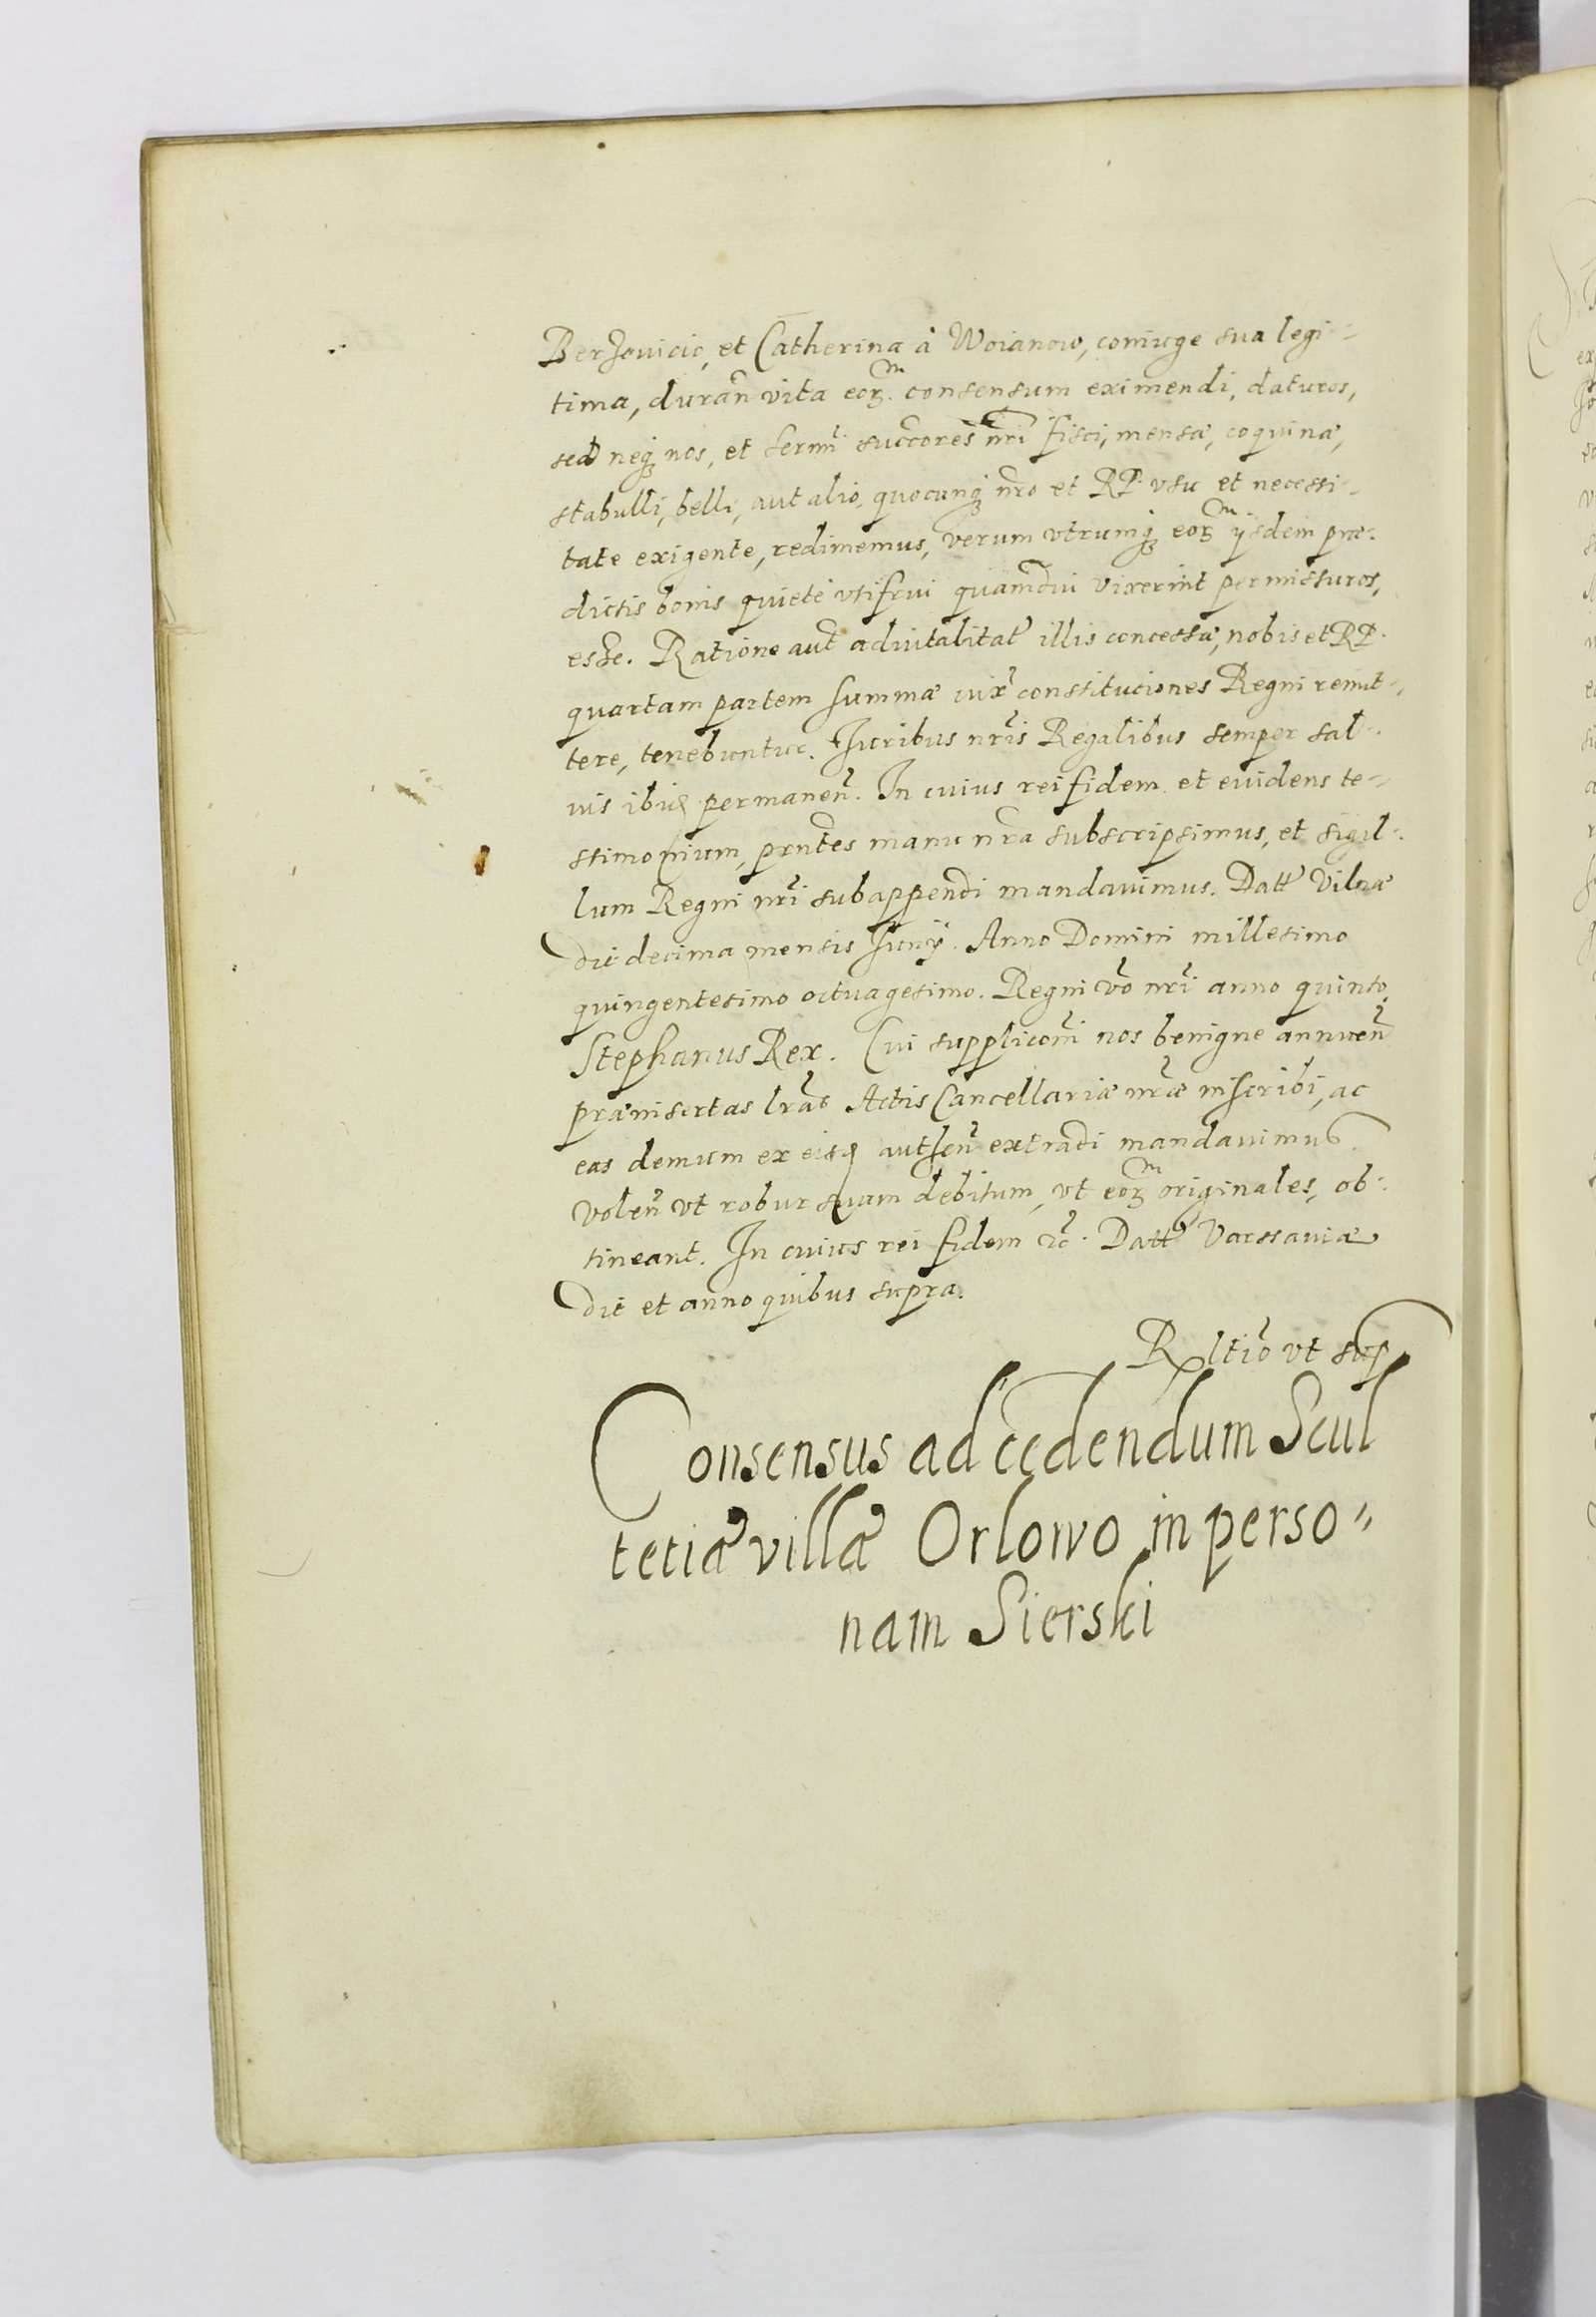 Berzevicio, et Catherina à Woianow, coniuge sua legi-
tima, durañ vita eorᷤ. consensum eximendi, daturos,
sed neq; nos, et Sermĩ succores nrĩ fisci, mensæ, coquinæ,
stabulli, belli, aut alio, quocunq; nro et RP. vsu et necessi-
tate exigente, redimemus, verum vtrumq; eorᷤ ijsdem præ-
dictis bonis quietè vtifrui quamdiu vixerint permissuros,
esse. Ratione aut aduitalitat illis concessæ, nobis et RP.
quartam partem summæ iuxͭ constitutiones Regni remit-
tere, tenebuntur. Iuribus nrĩs Regalibus semper sal-
uis ibiq; permaneñ. In cuius rei fidem et euidens te-
stimonium, prntes manu nra subscripsimus, et sigil-
lum Regni nrĩ subappendi mandauimus. Datt Vilnæ
die decima mensis Iunij. Anno Domini millesimo
quingentesimo octuagesimo. Regni vo nrĩ anno quinto
Stephanus Rex. Cui suppliconi nos benigne annueñ
præinsertas lras Actis Cancellariæ nræ inscribi, ac
eas demum ex eisq; autheñ extradi mandauimus.
Voleñ vt robur suam debitum, vt eorᷤ originales, ob-
tineant. In cuius rei fidem ꝛc. Datt Varssauiæ
die et anno quibus supra.
Rltio vt sup
Consensus ad cedendum Scul
tetiæ villæ Orlowo in perso=
nam Sierski